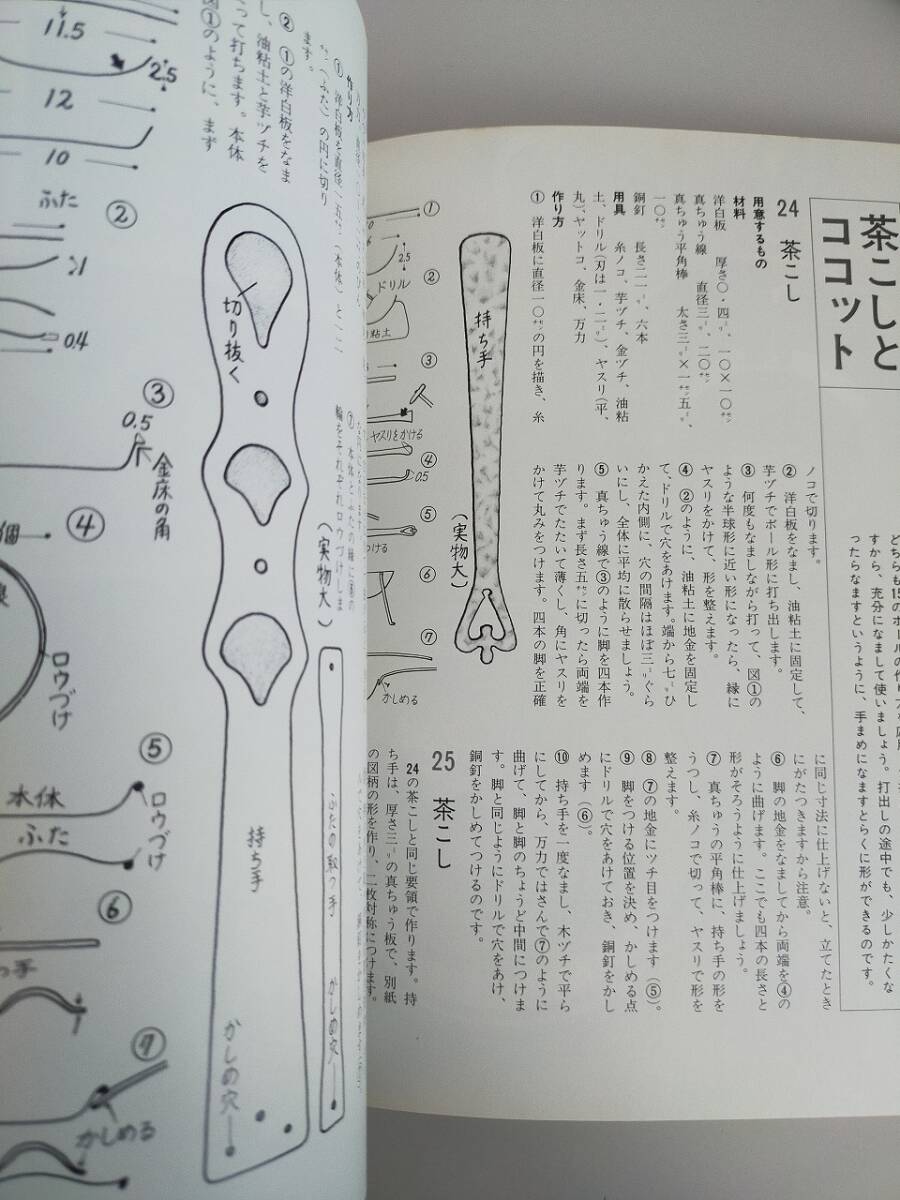 茶こしと
ココット
どちらも15のボールの作り方を応用
すから、充分になまして使いましょう。打出しの途中でも、少しかたくな
ったらなますというように、手まめになますとらくに形ができるのです。
24 茶こし
用意するもの
材料
洋白板 厚さ〇・四㍉、一〇×一〇㌢
真ちゅう線 直径三㍉、二〇㌢
真ちゅう平角棒 太さ三㍉×一㌢五㍉、
一〇㌢
銅釘 長さ二一㍉、六本
用具 糸ノコ、芋ヅチ、金ヅチ、油粘
土、ドリル(刃は一・二㍉)、ヤスリ(平、
丸)、ヤットコ、金床、万力
作り方
① 洋白板に直径一〇㌢の円を描き、糸
ノコで切ります。
② 洋白板をなまし、油粘土に固定して、
芋ヅチでボール形に打ち出します。
③ 何度もなましながら打って、図①の
ような半球形に近い形になったら、縁に
ヤスリをかけて、形を整えます。
④ ②のように、油粘土に地金を固定し
て、ドリルで穴をあけます。端から七㍉ひ
かえた内側に、穴の間隔はほぼ三㍉ぐら
いにし、全体に平均に散らせましょう。
⑤ 真ちゅう線で③のように脚を四本作
ります。まず長さ五㌢に切ったら両端を
芋ヅチでたたいて薄くし、角にヤスリを
かけて丸みをつけます。四本の脚を正確
に同じ寸法に仕上げないと、立てたとき
にがたつきますから注意。
⑥ 脚の地金をなましてから両端を④の
ように曲げます。ここでも四本の長さと
形がそろうように仕上げましょう。
⑦ 真ちゅうの平角棒に、持ち手の形を
うつし、糸ノコで切って、ヤスリで形を
整えます。
⑧ ⑦の地金にツチ目をつけます(⑤)。
⑨ 脚をつける位置を決め、かしめる点
にドリルで穴をあけておき、銅釘をかし
めます(⑥)。
⑩ 持ち手を一度なまし、木ヅチで平ら
にしてから、万力ではさんで⑦のように
曲げて、脚と脚のちょうど中間につけま
す。脚と同じようにドリルで穴をあけ、
銅釘をかしめてつけるのです。
25 茶こし
24の茶こしと同じ要領で作ります。持
ち手は、厚さ三㍉の真ちゅう板で、別紙
の図柄の形を作り、二枚対称につけます。
持ち手
(実物大)
①
2.5
②
ドリル
粘土
③
ヤスリをかける
④
0.5
⑤
つける
⑥
⑦
かしめる
作り方
① 洋白板を直径一五㌢(本体)と一二
㌢(ふた)の円に切り
ます。
② ①の洋白板をなま
し、油粘土と芋ヅチを
って打ちます。本体
図①のように、まず
⑦ 本体とふたの縁に
輪をそれぞれロウづけしま
11.5
2.5
12
10
ふた
②
0.4
③
0.5
金床の角
④
個
ロウづけ
⑤
本体
ロウづけ
ふた
⑥
っ手
⑦
かしめる
切り抜く
(実物大)
持ち手
かしめ穴
ふたの取っ手
かしめ穴